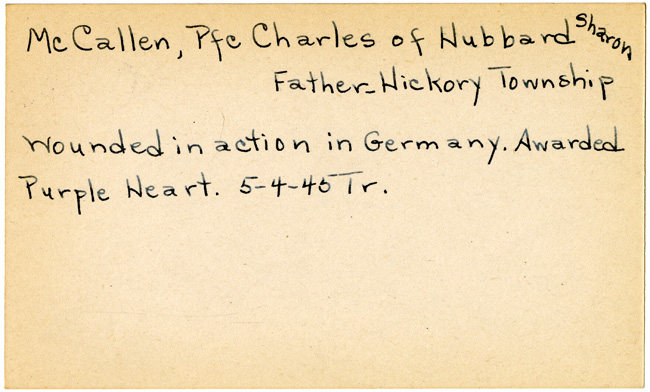 McCallen, Pfc Charles of Hubbard Sharon
Father-Hickory Township
Wounded in action in Germany. Awarded
Purple Heart. 5-4-45 Tr.